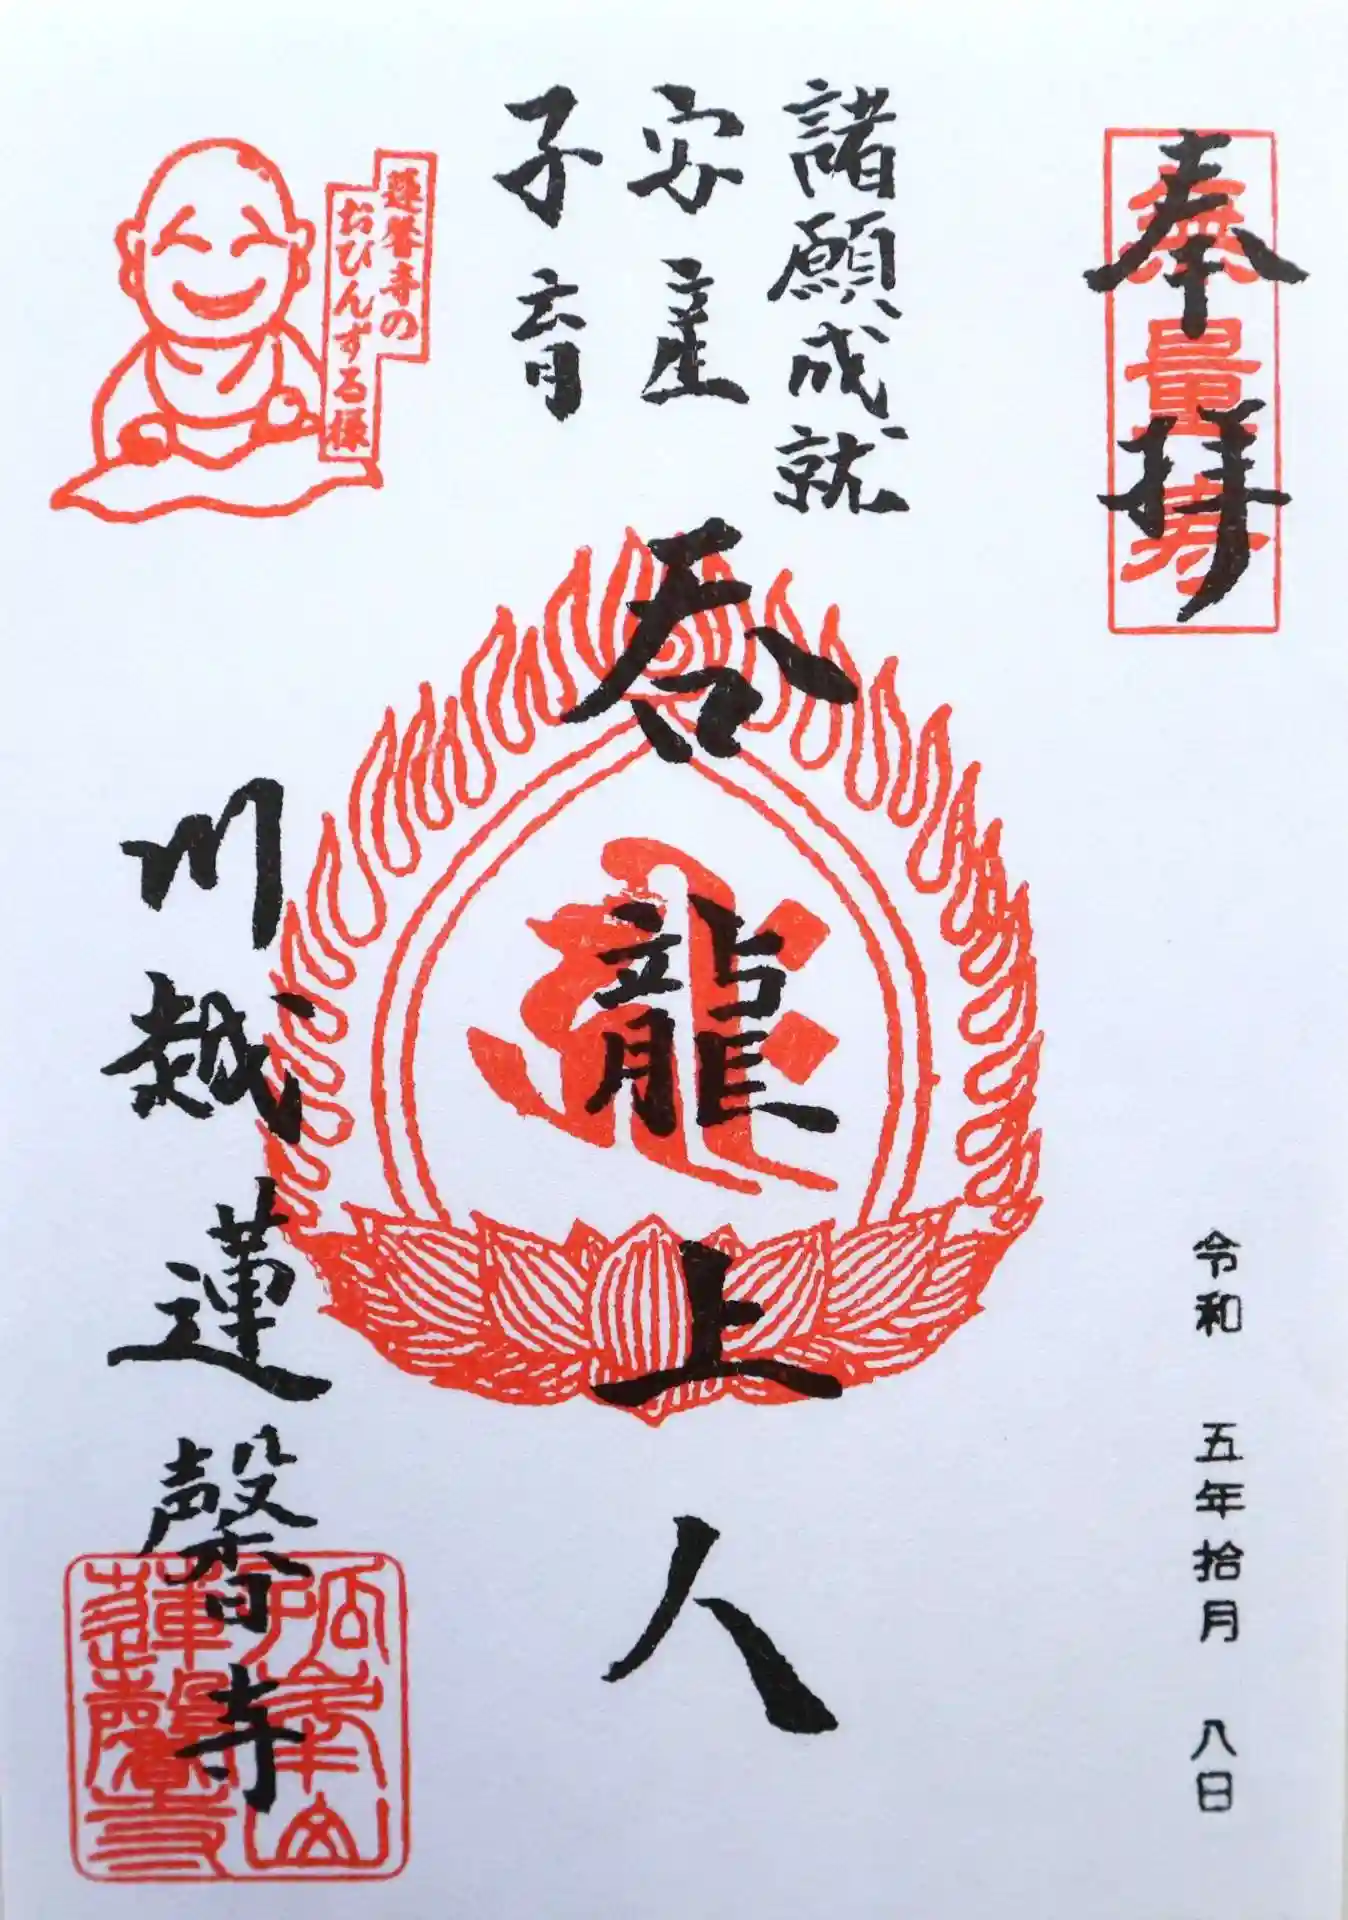 奉拝
無量寿
令和 五年拾月 八日
諸願成就
安産
子育
呑龍上人
蓮馨寺の
おびんずる様
川越 蓮馨寺
孤峯山
蓮馨寺